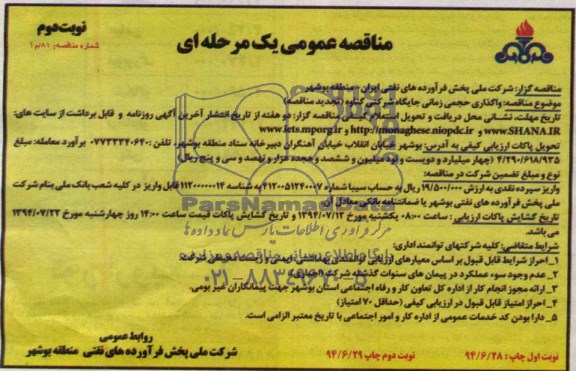 نوبت دوم
شماره مناقصه: ۸۱/م۱
مناقصه عمومی یک مرحله ای
مناقصه گزار: شرکت ملی پخش فرآورده های نفتی ایران - منطقه بوشهر
موضوع مناقصه: واگذاری حجمی زمانی جایگاه شرکتی گناوه (تجدید مناقصه)
مهلت، نشانی محل دریافت و تحویل اسناد مناقصه گزار: دو هفته از تاریخ انتشار آخرین آگهی روزنامه و قابل برداشت از سایت های:
www.SHANA.IR و http://monaghese.niopdc.ir و www.iets.mporg.ir
تحویل پاکات ارزیابی کیفی به آدرس: بوشهر خیابان انقلاب خیابان آهنگران دبیرخانه ستاد منطقه بوشهر، تلفن: ۰۷۷۳۳۳۴۰۶۴۰ برآورد معامله: مبلغ
۴/۲۹۰/۶۱۸/۹۳۵ (چهار میلیارد و دویست و نود میلیون و ششصد و هجده هزار و نهصد و سی و پنج ریال)
نوع و مبلغ تضمین شرکت در مناقصه:
واریز سپرده نقدی به ارزش ۱۹/۵۰۰/۰۰۰ ریال به حساب سیبا شماره ۴۱۲۰۰۵۱۲۴۰۰۰۷ به شناسه ۱۱۲۰۰۰۰۰۰۱۴ قابل واریز در کلیه شعب بانک ملی بنام شرکت
ملی پخش فرآورده های نفتی بوشهر یا ضمانتنامه بانکی معادل آن
تاریخ گشایش پاکات ارزیابی: ساعت ۰۸:۰۰ یکشنبه مورخ ۱۳۹۴/۰۷/۱۲ و تاریخ گشایش پاکات قیمت ساعت ۱۴:۰۰ روز چهارشنبه مورخ ۱۳۹۴/۰۷/۲۲
می باشد.
شرایط متقاضی: کلیه شرکتهای توانمند اداری:
۱_احراز شرایط قابل قبول بر اساس معیارهای ارزیابی توانمندی بهداشتی، ایمنی و زیست محیطی شرکت
۲_عدم وجود سوء عملکرد در پیمان های سنوات گذشته شرکت
۳_ارائه مجوز انجام کار از اداره کل تعاون کار و رفاه اجتماعی استان بوشهر جهت پیمانکاران غیر بومی.
۴_احراز امتیاز قابل قبول در ارزیابی کیفی (حداقل ۷۰ امتیاز)
۵_دارا بودن کد خدمات عمومی از اداره کار و امور اجتماعی با تاریخ معتبر الزامی است.
نوبت اول چاپ: ۹۴/۶/۲۸
نوبت دوم چاپ ۹۴/۶/۲۹
روابط عمومی
شرکت ملی پخش فرآورده های نفتی منطقه بوشهر
ParsNamadData
مرکز فرآوری اطلاعات پارس نماد داده ها
پایگاه اطلاع رسانی مناقصه و مزایده
۰۲۱-۸۸۳۴۹۶۷۰-۵